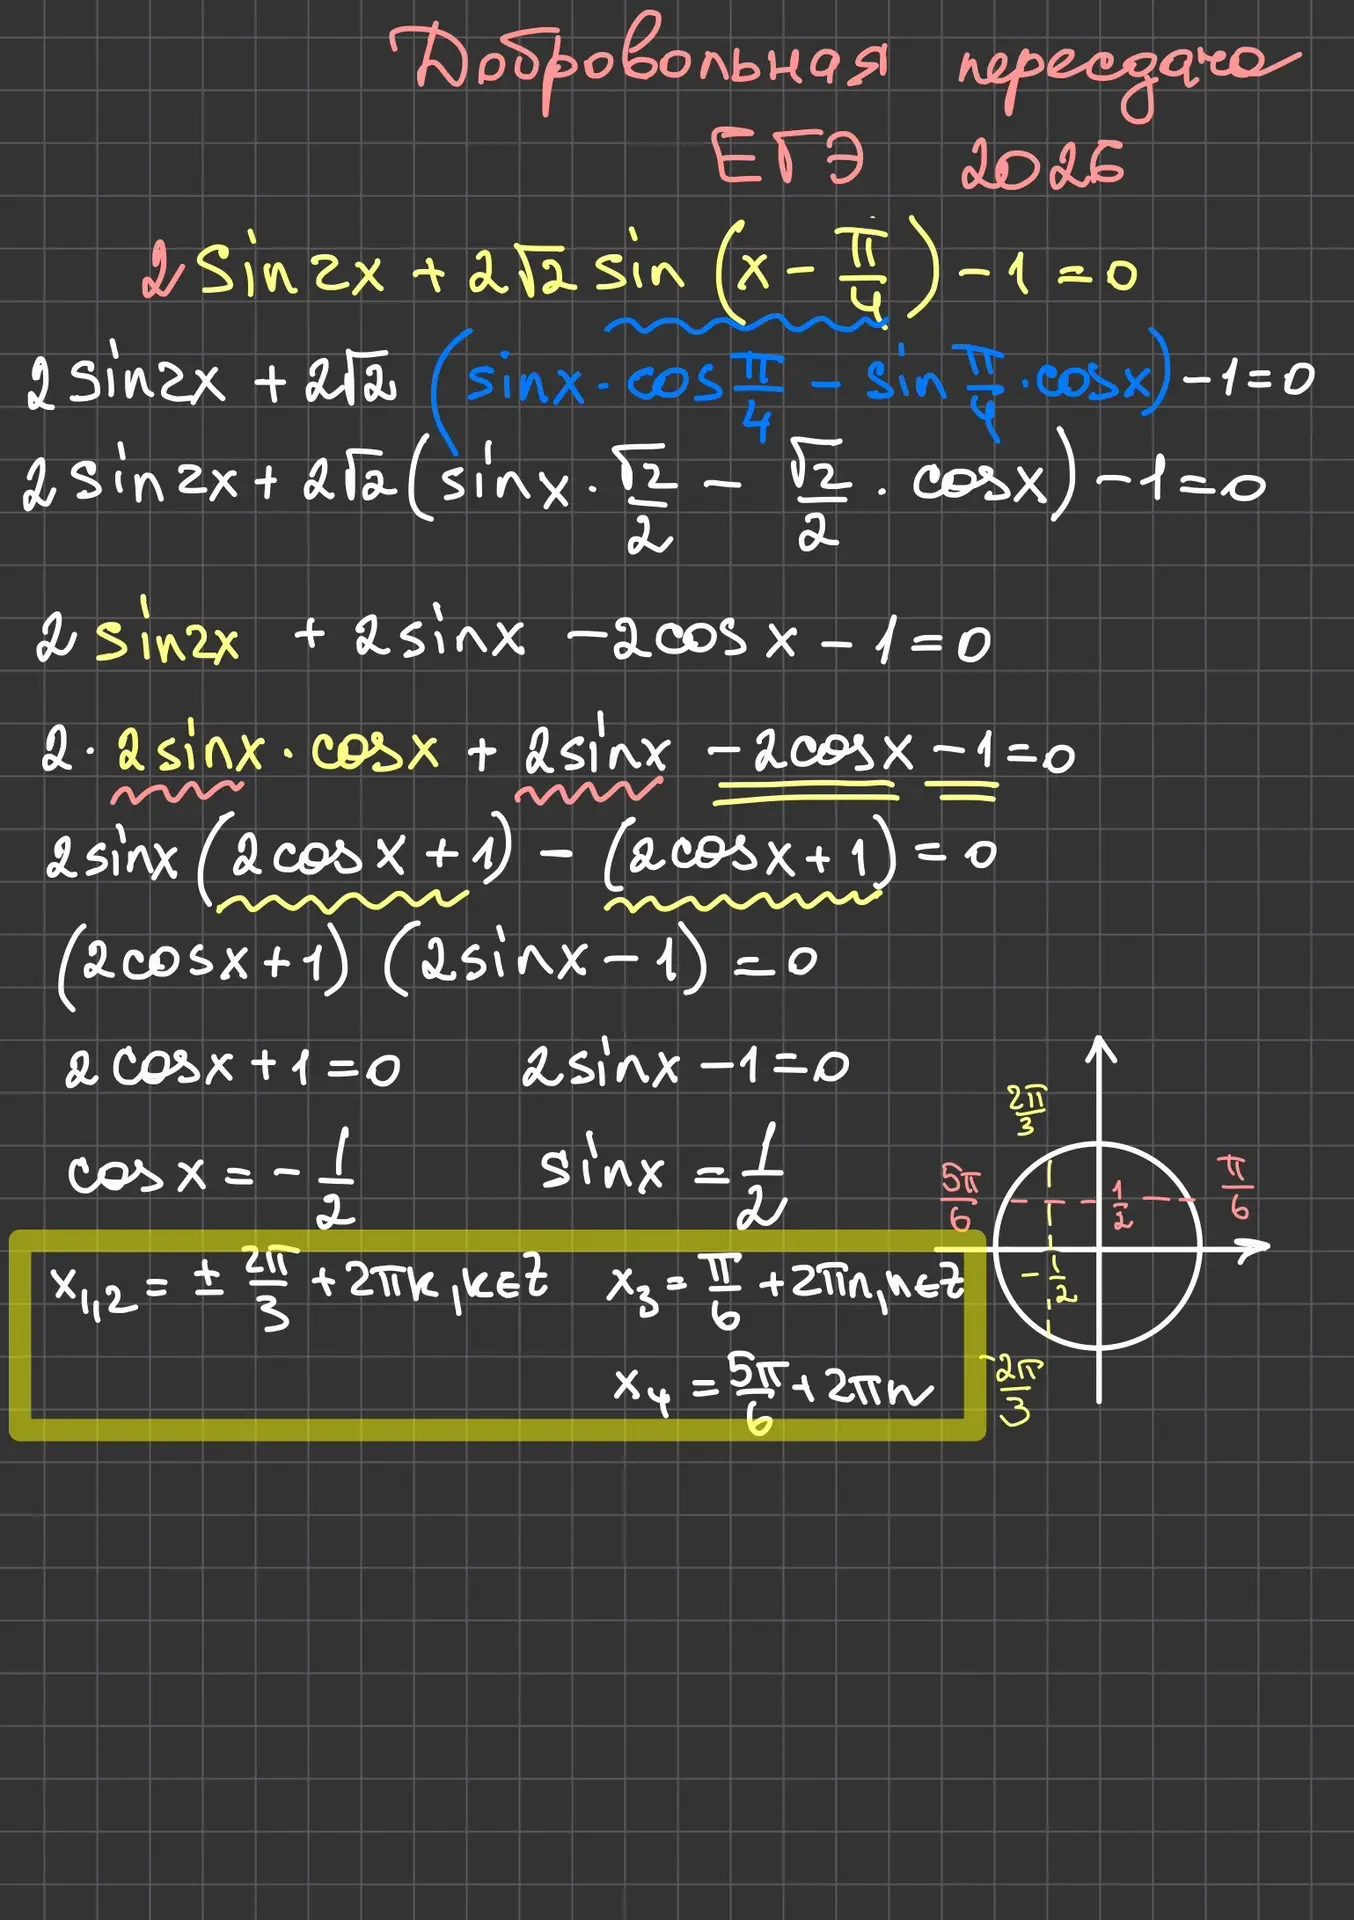 Добровольная пересдача
ЕГЭ 2026
2 sin2x + 2√2 sin (x - π/4) - 1 = 0
2sin2x + 2√2 (sinx · cos π/4 - sin π/4 · cosx) - 1 = 0
2sin2x + 2√2 (sinx · √2/2 - √2/2 · cosx) - 1 = 0
2 sin2x + 2sinx - 2cosx - 1 = 0
2 · 2sinx · cosx + 2sinx - 2cosx - 1 = 0
2sinx (2cosx + 1) - (2cosx + 1) = 0
(2cosx + 1) (2sinx - 1) = 0
2cosx + 1 = 0 2sinx - 1 = 0
cosx = - 1/2 sinx = 1/2
x1,2 = ± 2π/3 + 2πk, k∈Z x3 = π/6 + 2πn, n∈Z
x4 = 5π/6 + 2πn
2π/3
5π/6 1/2 π/6
- 1/2
-2π/3